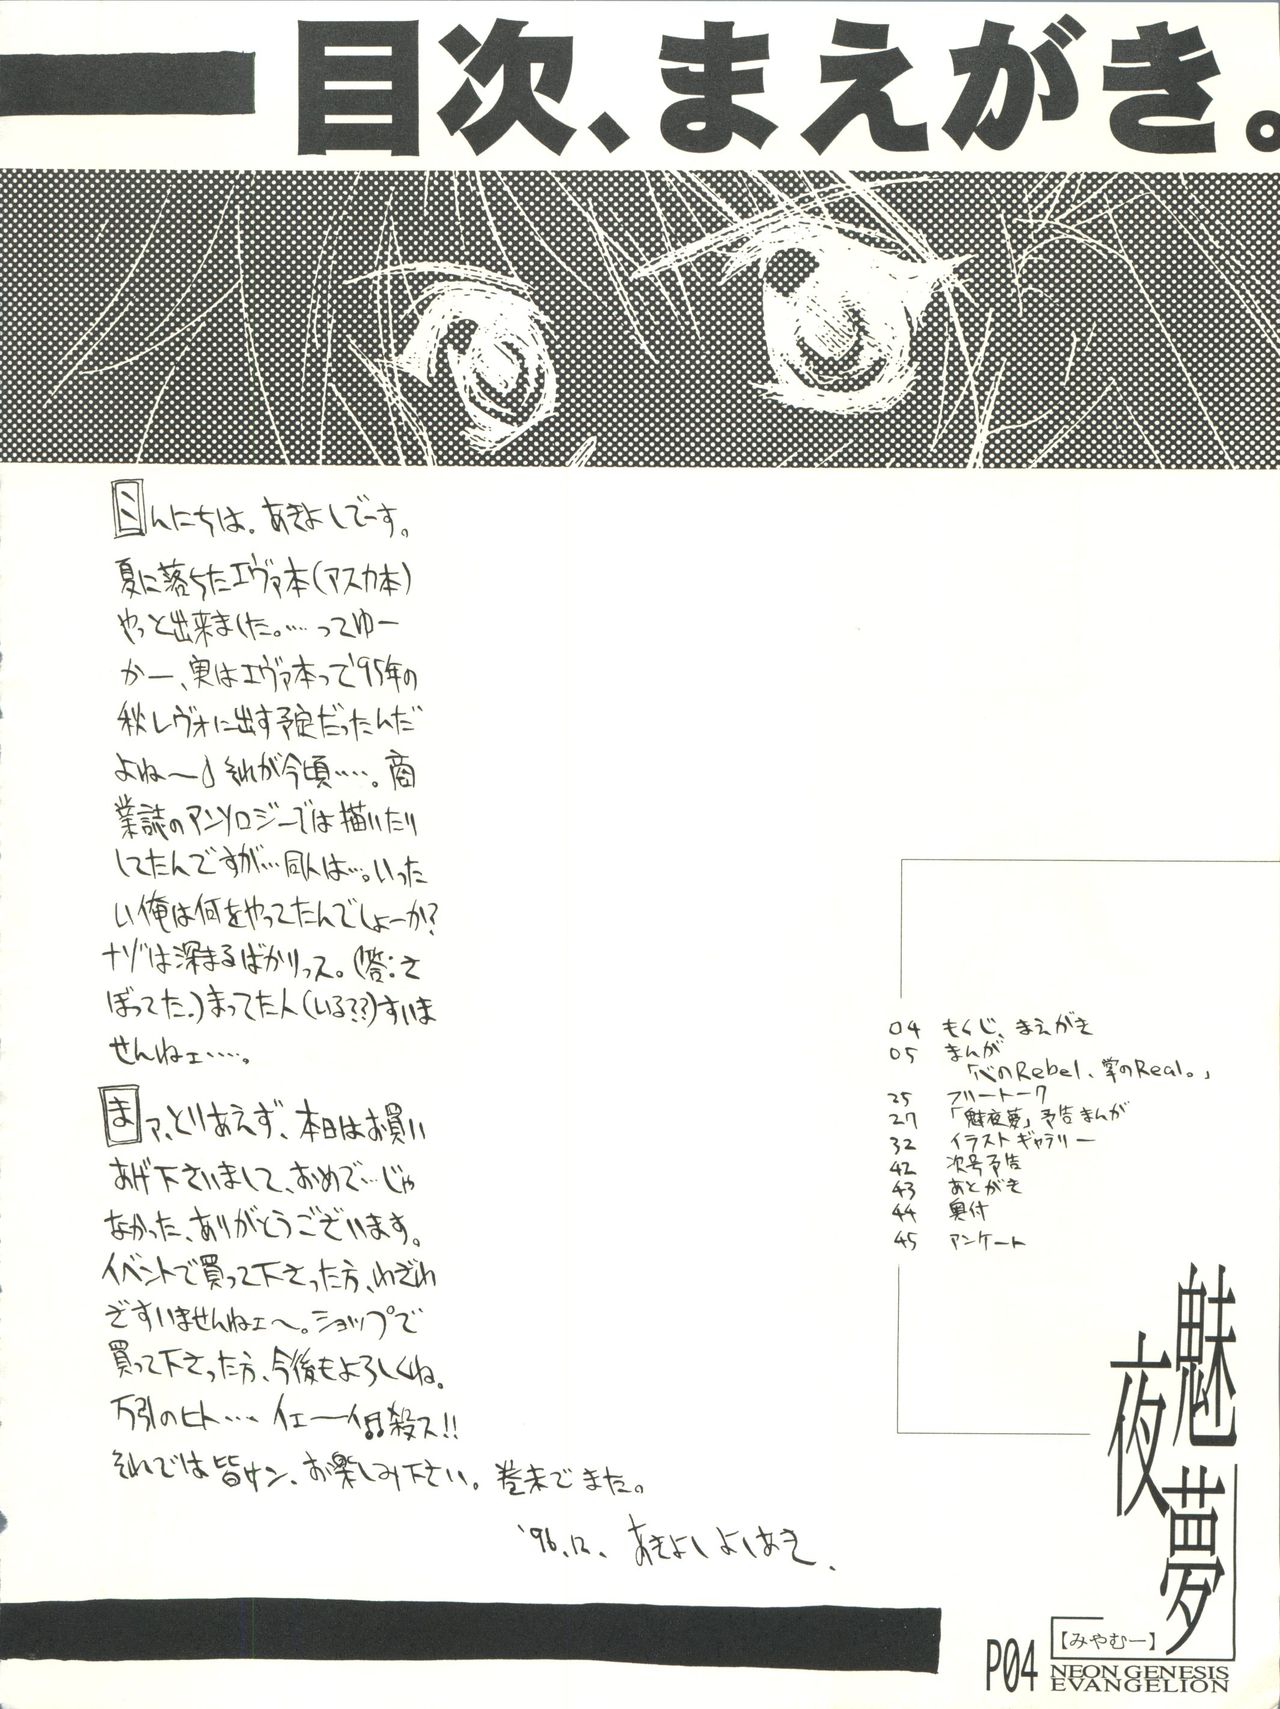 目次、まえがき。
こんにちは。あきよしでーす。
夏に落ちたエヴァ本(アスカ本)
やっと出来ました。…ってゆー
かー、実はエヴァ本って'95年の
秋レヴォに出す予定だったんだ
よね〜♪それが今頃…。商
業誌のアンソロジーでは描いたり
してたんですが…同人は…。いった
い俺は何をやってたんでしょーか?
ナゾは深まるばかりっス。(答:さ
ぼってた。)まってた人(いる??)すいま
せんねェ…。
まァ、とりあえず、本日はお買い
あげ下さいまして、おめで…じゃ
なかった、ありがとうございます。
イベントで買って下さった方、わざわ
ざすいませんねェ〜。ショップで
買って下さった方、今後もよろしくね。
万引のヒト… イェーイ♫殺ス!!
それでは皆サン、お楽しみ下さい。巻末でまた。
'96.12. あきよしよしあき.
04 もくじ、まえがき
05 まんが
「心のRebel、掌のReal。」
25 フリートーク
27 「魅夜夢」予告まんが
32 イラストギャラリー
42 次号予告
43 あとがき
44 奥付
45 アンケート
魅夜夢
【みやむー】
P04
NEON GENESIS
EVANGELION